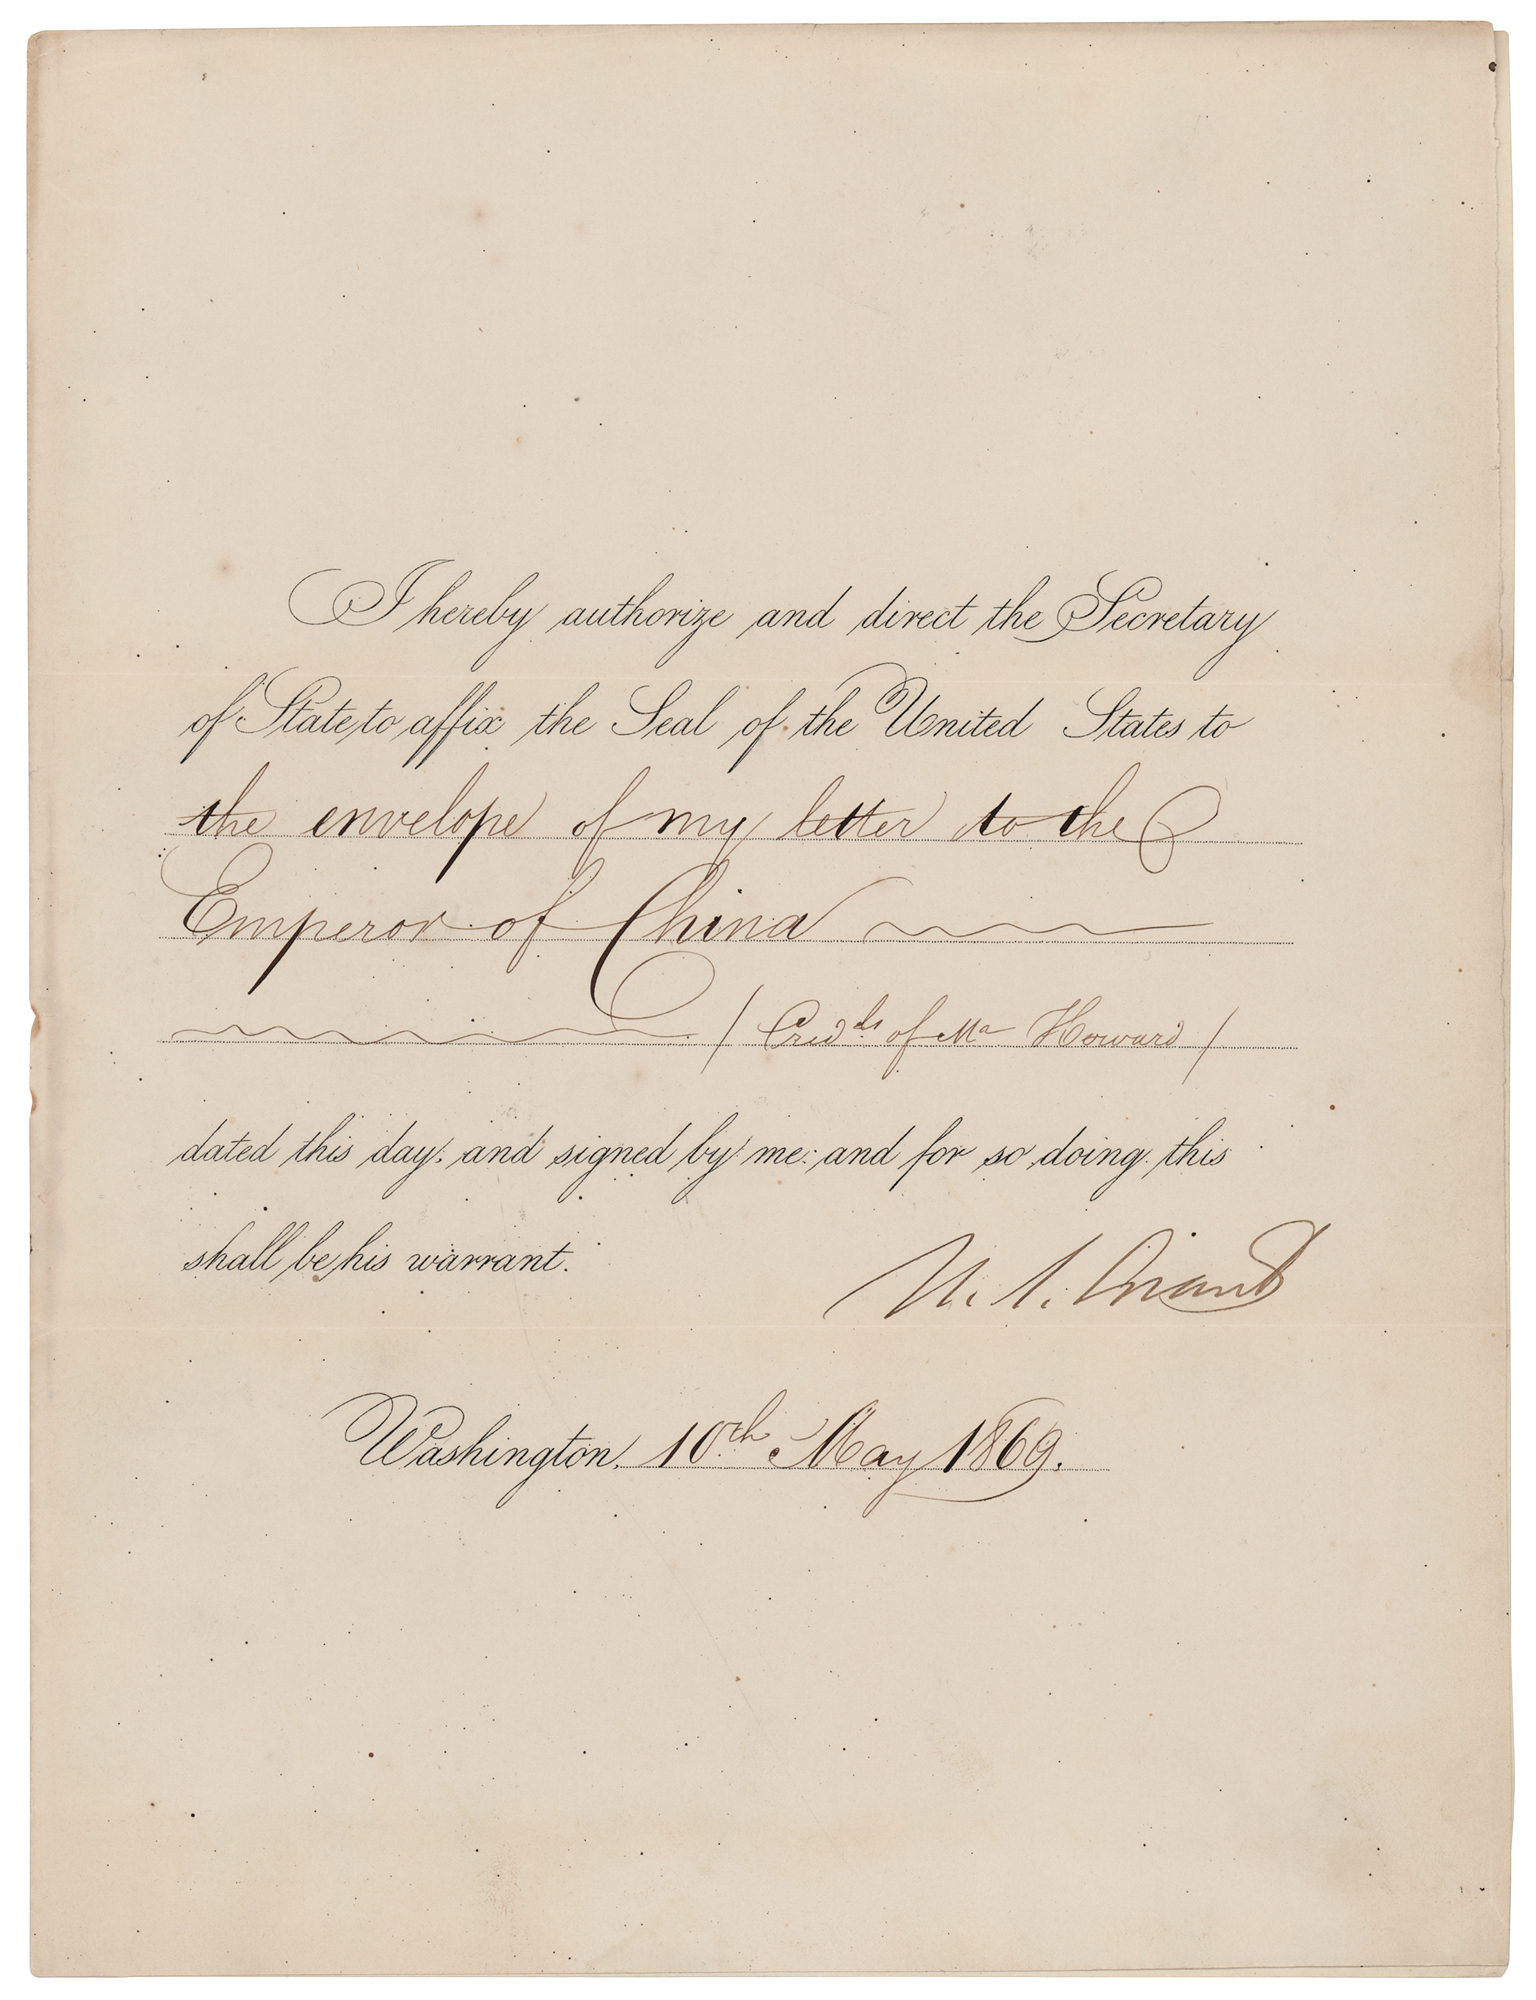 I hereby authorize and direct the Secretary
of State to affix the Seal of the United States to
the envelope of my letter to the
Emperor of China
(Creds. of Mr Howard)
dated this day: and signed by me: and for so doing this
shall be his warrant.
U. S. Grant
Washington, 10th May 1869.